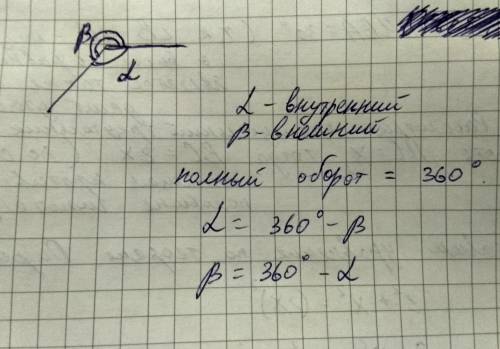 β
α
α - внутренний
β - внешний
полный оборот = 360°.
α = 360° - β
β = 360° - α